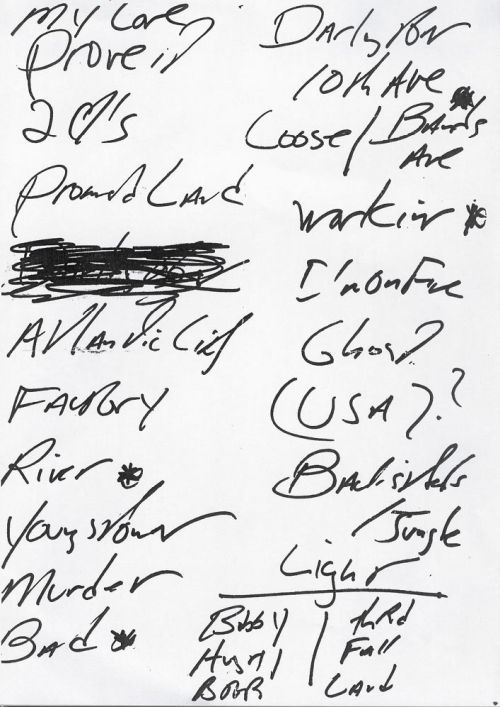 My Love
Prove it
2 ♥'s
Promd Land
Atlantic City
Factory
River *
Youngstown
Murder
Bad *
Darlyton
10th Ave *
Loose /
Ave
Workin *
I'm On Fire
Ghost
(USA)?
Backstrts
/Jungle
Light
Bobby | thRd
Hugry | Fall
BORR | Land